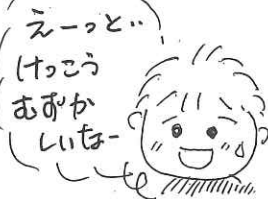 えーっと‥
けっこう
むずか
しいなー